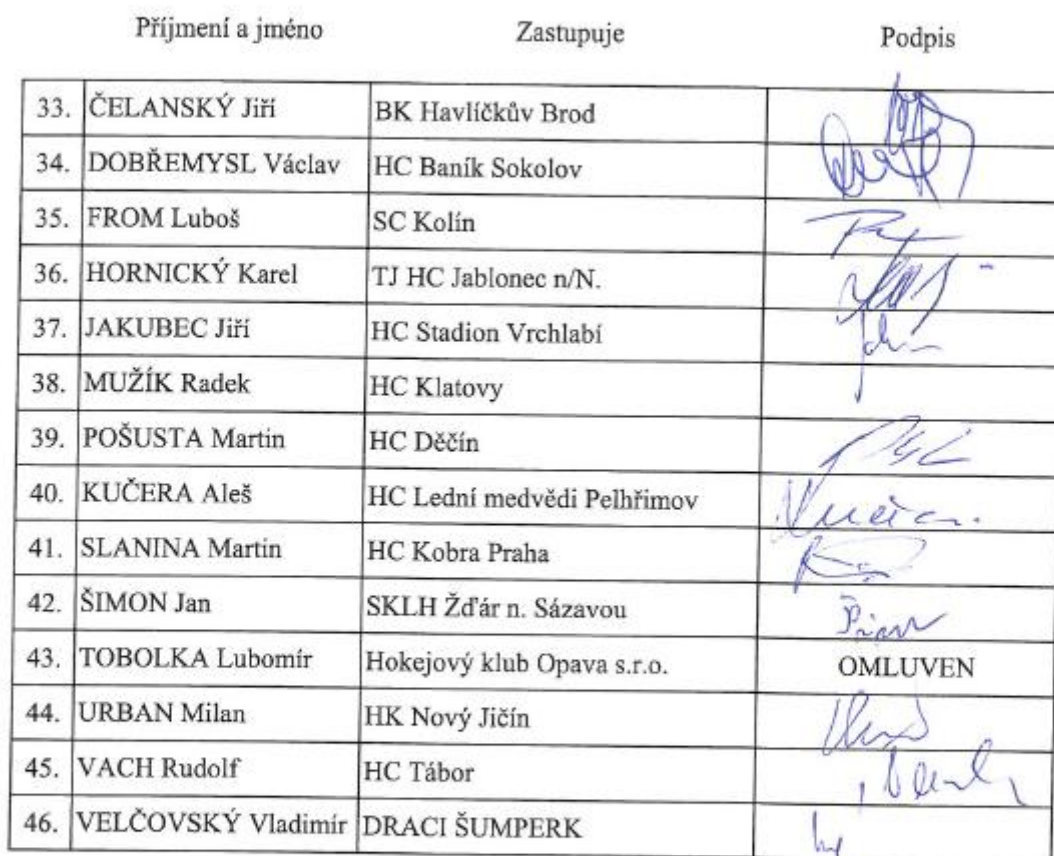 Příjmení a jméno Zastupuje Podpis
33. ČELANSKÝ Jiří BK Havlíčkův Brod
34. DOBŘEMYSL Václav HC Baník Sokolov
35. FROM Luboš SC Kolín
36. HORNICKÝ Karel TJ HC Jablonec n/N.
37. JAKUBEC Jiří HC Stadion Vrchlabí
38. MUŽÍK Radek HC Klatovy
39. POŠUSTA Martin HC Děčín
40. KUČERA Aleš HC Lední medvědi Pelhřimov
41. SLANINA Martin HC Kobra Praha
42. ŠIMON Jan SKLH Žďár n. Sázavou
43. TOBOLKA Lubomír Hokejový klub Opava s.r.o. OMLUVEN
44. URBAN Milan HK Nový Jičín
45. VACH Rudolf HC Tábor
46. VELČOVSKÝ Vladimír DRACI ŠUMPERK